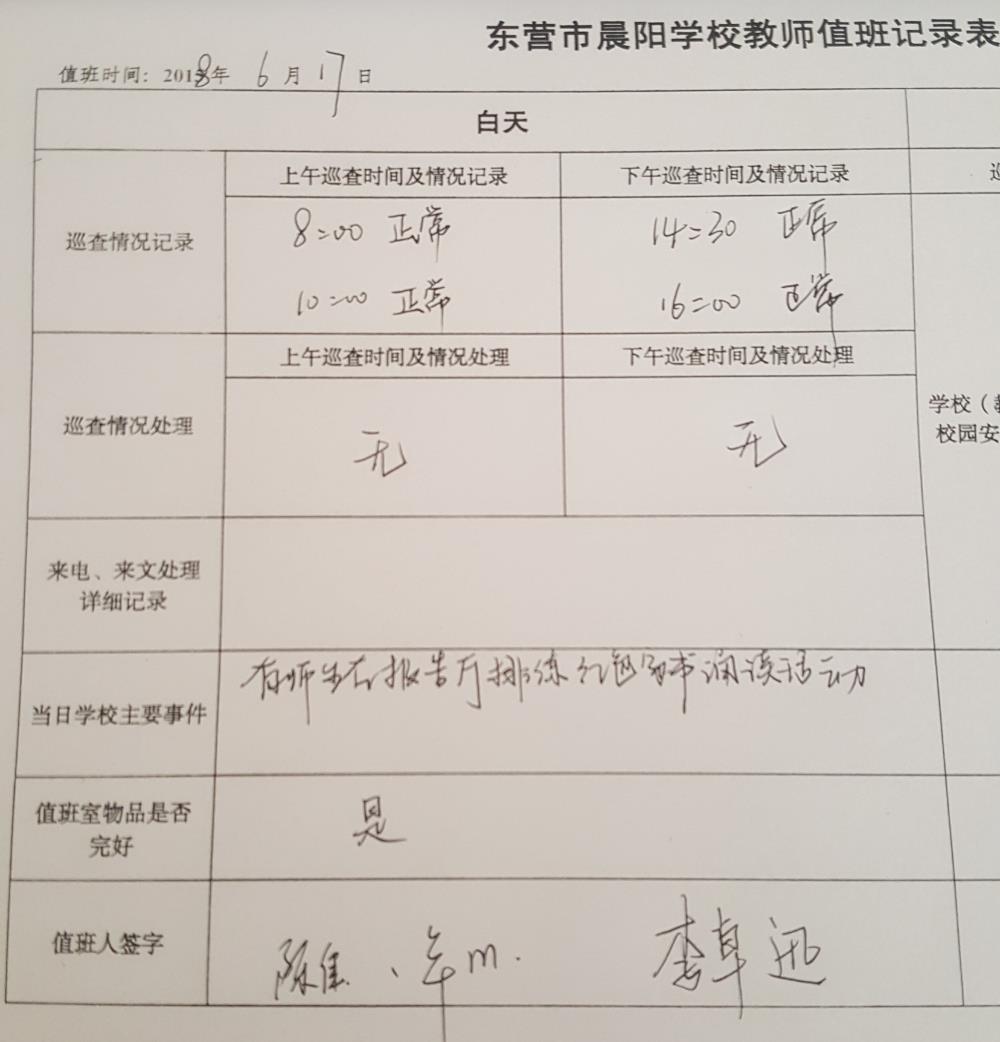 东营市晨阳学校教师值班记录表
值班时间：2018年 6月17日
白天
巡查情况记录
上午巡查时间及情况记录
下午巡查时间及情况记录
8:00 正常
14:30 正常
10:00 正常
16:00 正常
巡查情况处理
上午巡查时间及情况处理
下午巡查时间及情况处理
无
无
学校（
校园安
来电、来文处理
详细记录
当日学校主要事件
有师生在报告厅排练红色图书阅读活动
值班室物品是否
完好
是
值班人签字
李卓迅